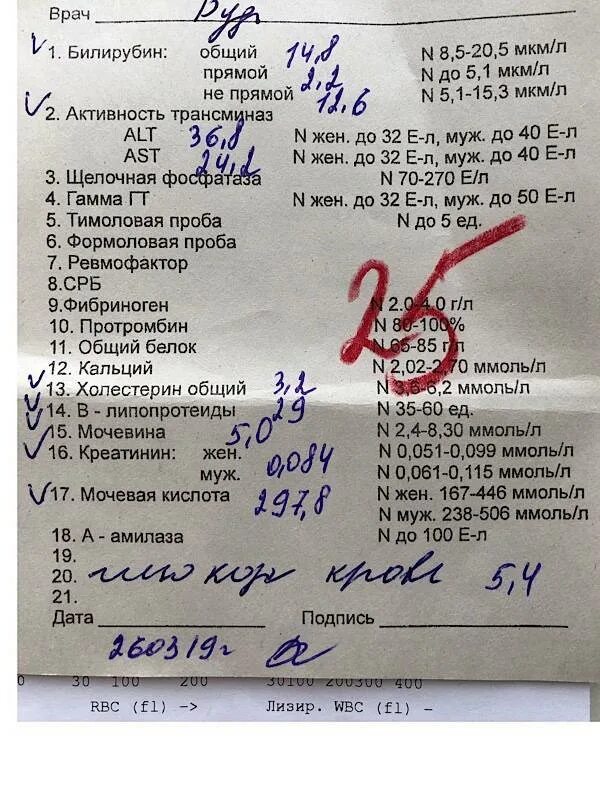 Врач Руд
✓ 1. Билирубин: общий 14,8 N 8,5-20,5 мкм/л
прямой 2,2 N до 5,1 мкм/л
не прямой 12,6 N 5,1-15,3 мкм/л
✓ 2. Активность трансминаз
ALT 36,8 N жен. до 32 Е-л, муж. до 40 Е-л
AST 24,2 N жен. до 32 Е-л, муж. до 40 Е-л
3. Щелочная фосфатаза N 70-270 Е/л
4. Гамма ГТ N жен. до 32 Е-л, муж. до 50 Е-л
5. Тимоловая проба N до 5 ед.
6. Формоловая проба
7. Ревмофактор
8.СРБ
25
9.Фибриноген N 2.0-4.0 г/л
10. Протромбин N 80-100%
11. Общий белок N 65-85 г/л
12. Кальций N 2,02-2,70 ммоль/л
✓ 13. Холестерин общий 3,2 N 3,6-6,2 ммоль/л
✓ 14. В - липопротеиды 29 N 35-60 ед.
✓ 15. Мочевина 5,0 N 2,4-8,30 ммоль/л
✓ 16. Креатинин: жен. N 0,051-0,099 ммоль/л
муж. 0,084 N 0,061-0,115 ммоль/л
✓ 17. Мочевая кислота 297,8 N жен. 167-446 ммоль/л
N муж. 238-506 ммоль/л
18. А - амилаза N до 100 Е-л
19.
20. глюкоза крови 5,4
21.
Дата Подпись
260319г
0 30 100 200 30100 200300 400
RBC (fl) -> Лизир. WBC (fl) -